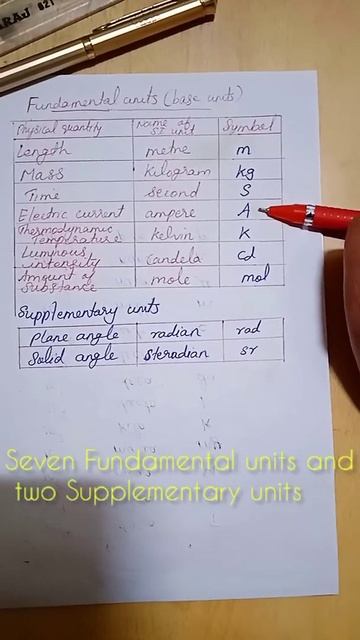 Fundamental units (base units)
Physical quantity Name of SI unit Symbol
Length metre m
Mass kilogram kg
Time second S
Electric current ampere A
Thermodynamic Temperature kelvin K
Luminous intensity candela Cd
Amount of Substance mole mol
Supplementary units
Plane angle radian rad
Solid angle steradian sr
Seven Fundamental units and
two Supplementary units